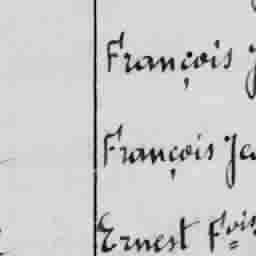 François J
François Jea
Ernest Fois